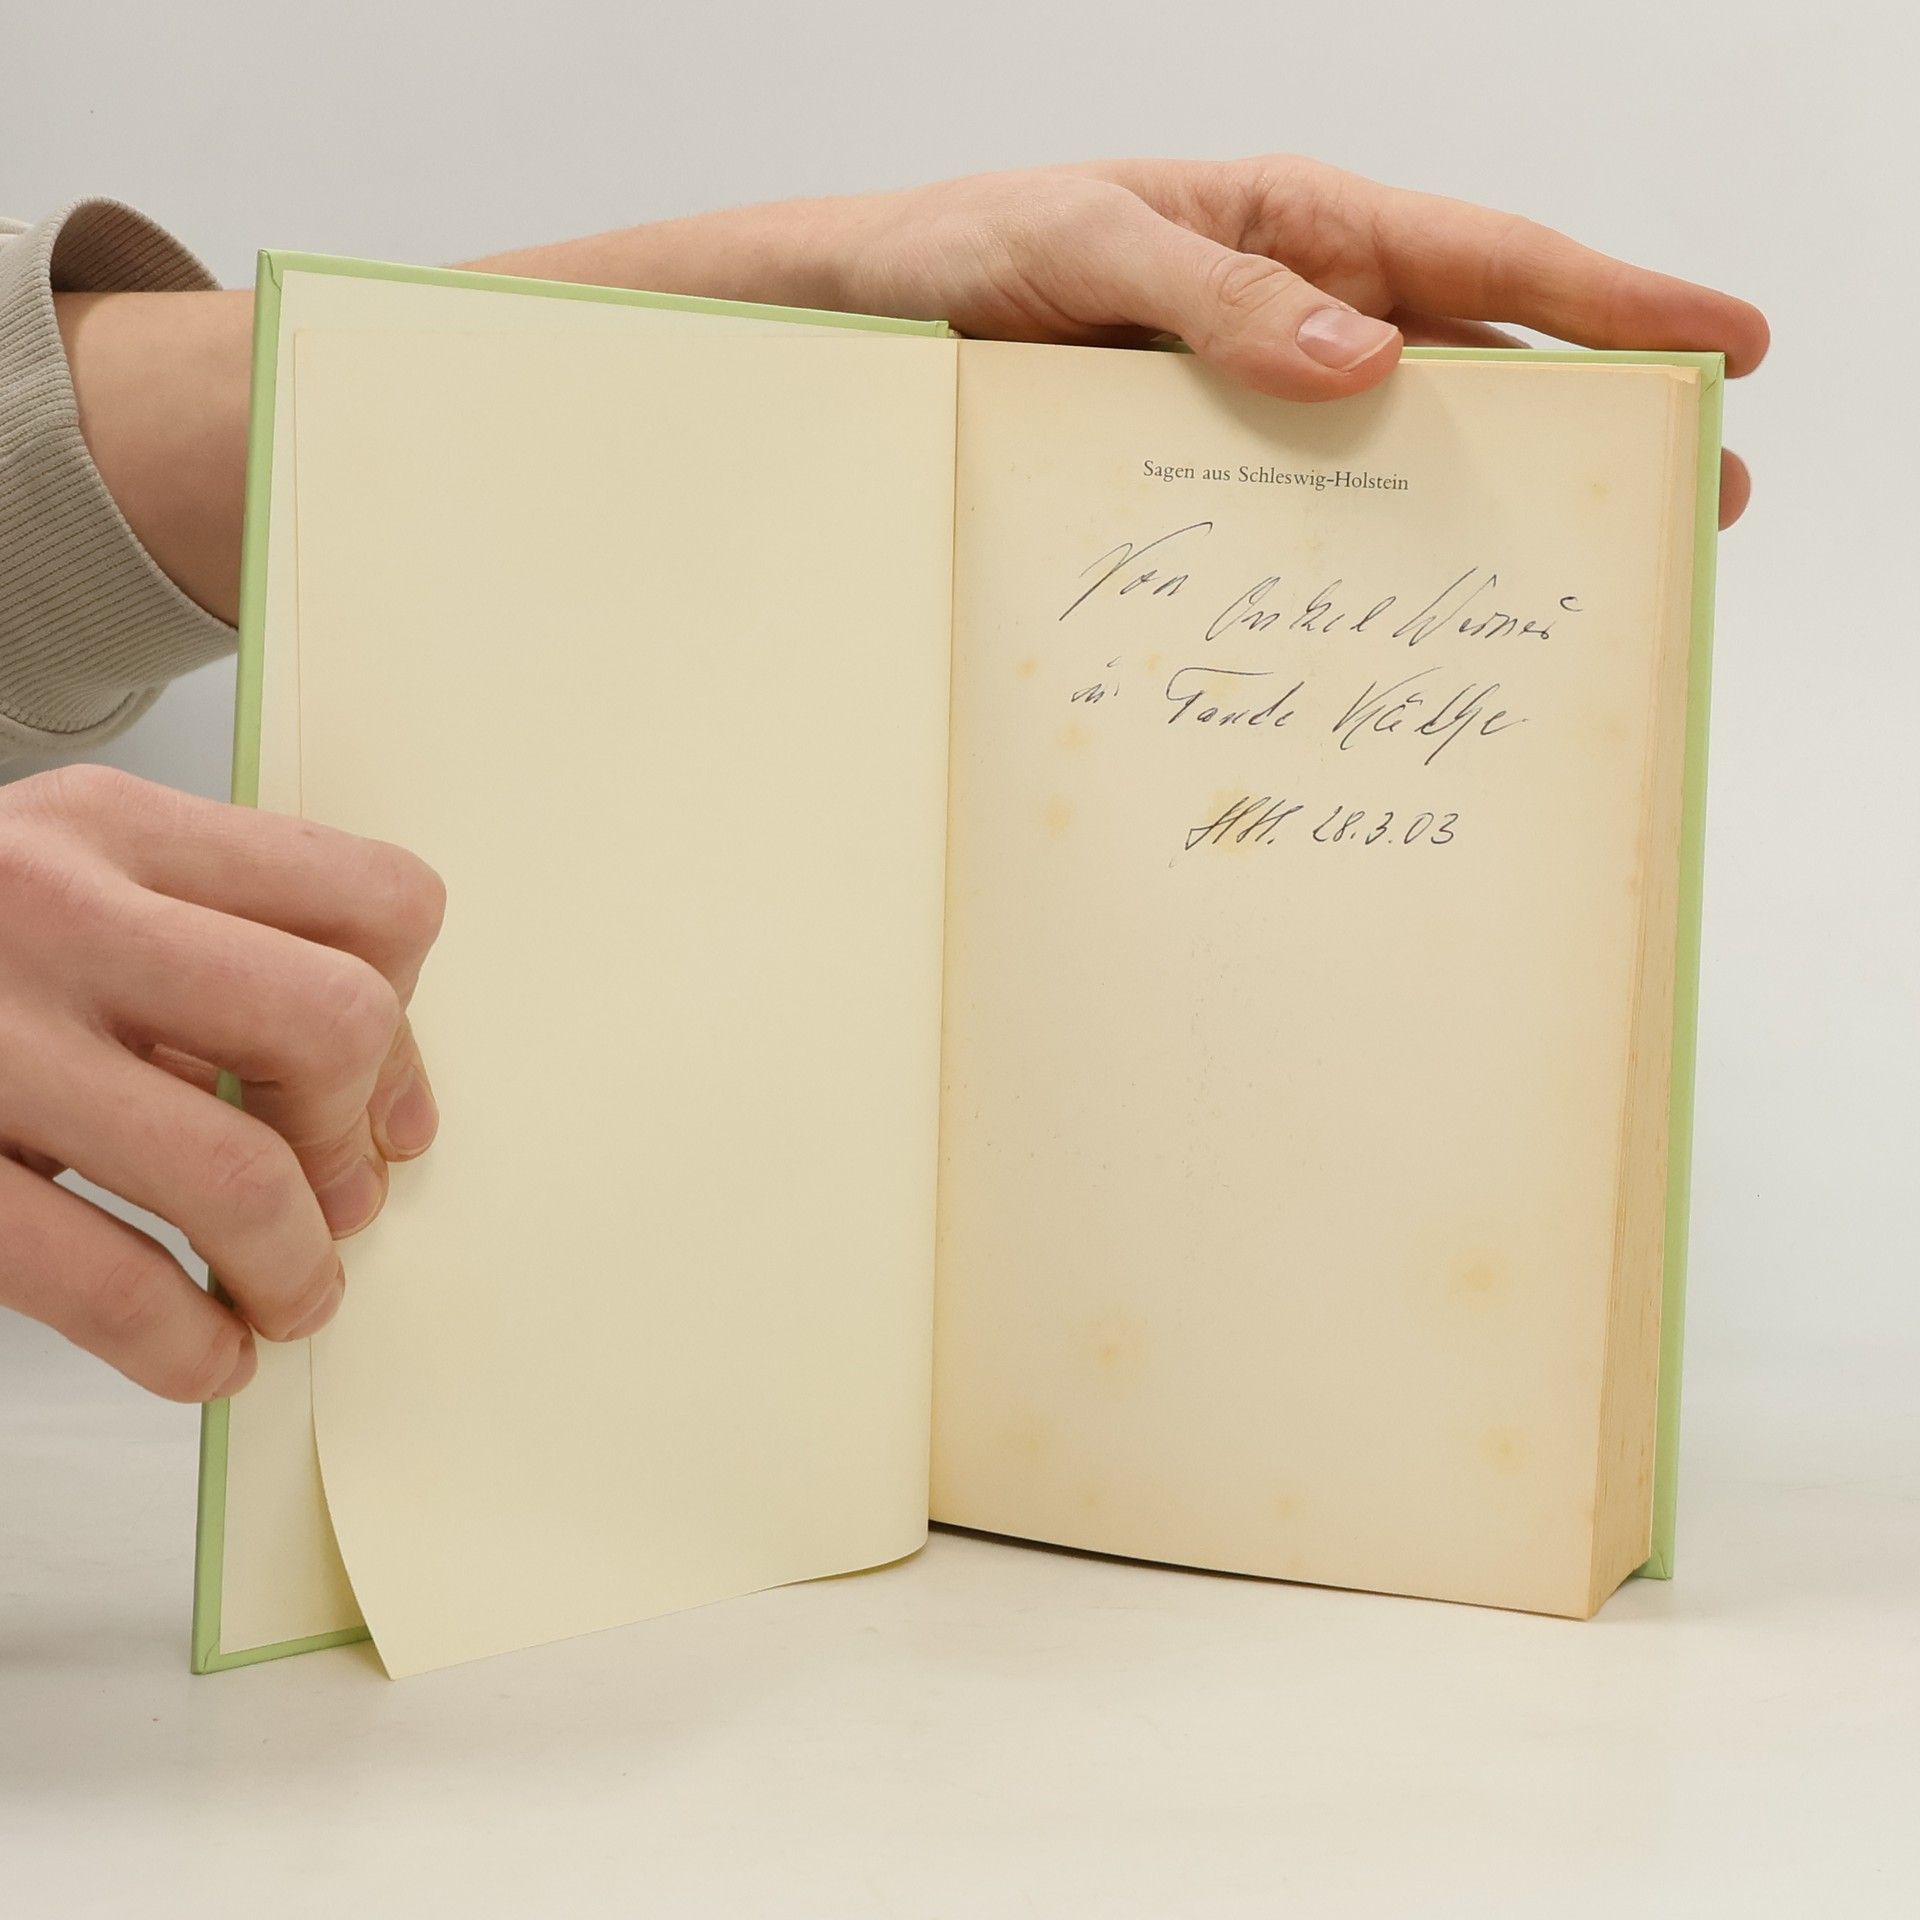 Sagen aus Schleswig-Holstein
Von Onkel Werner
u. Tante Käthe
HH. 28.3.03